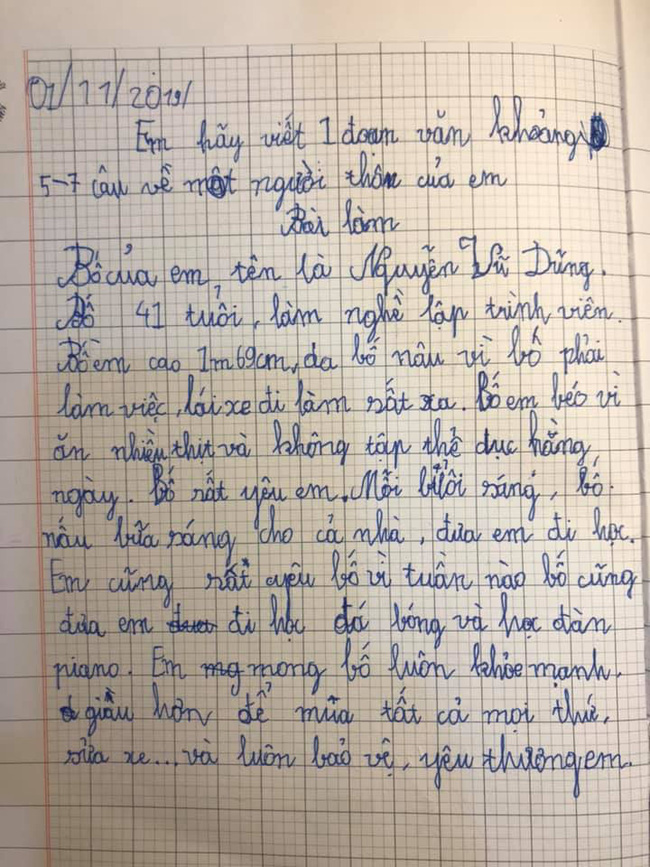 01/11/2019/
Em hãy viết 1 đoan văn khoảng
5-7 câu về một người thân của em
Bài làm
Bố của em, tên là Nguyễn Vũ Dũng.
Bố 41 tuổi, làm nghề lập trình viên.
Bố em cao 1m69cm, da bố nâu vì bố phải
làm việc, lái xe đi làm rất xa. Bố em béo vì
ăn nhiều thịt và không tập thể dục hằng
ngày. Bố rất yêu em. Mỗi buổi sáng, bố
nấu bữa sáng cho cả nhà, đưa em đi học.
Em cũng rất yêu bố vì tuần nào bố cũng
đưa em đi học đá bóng và học đàn
piano. Em mong bố luôn khỏe mạnh,
giầu hơn để mũa tất cả mọi thứ,
sửa xe... và luôn bảo vệ, yêu thương em.